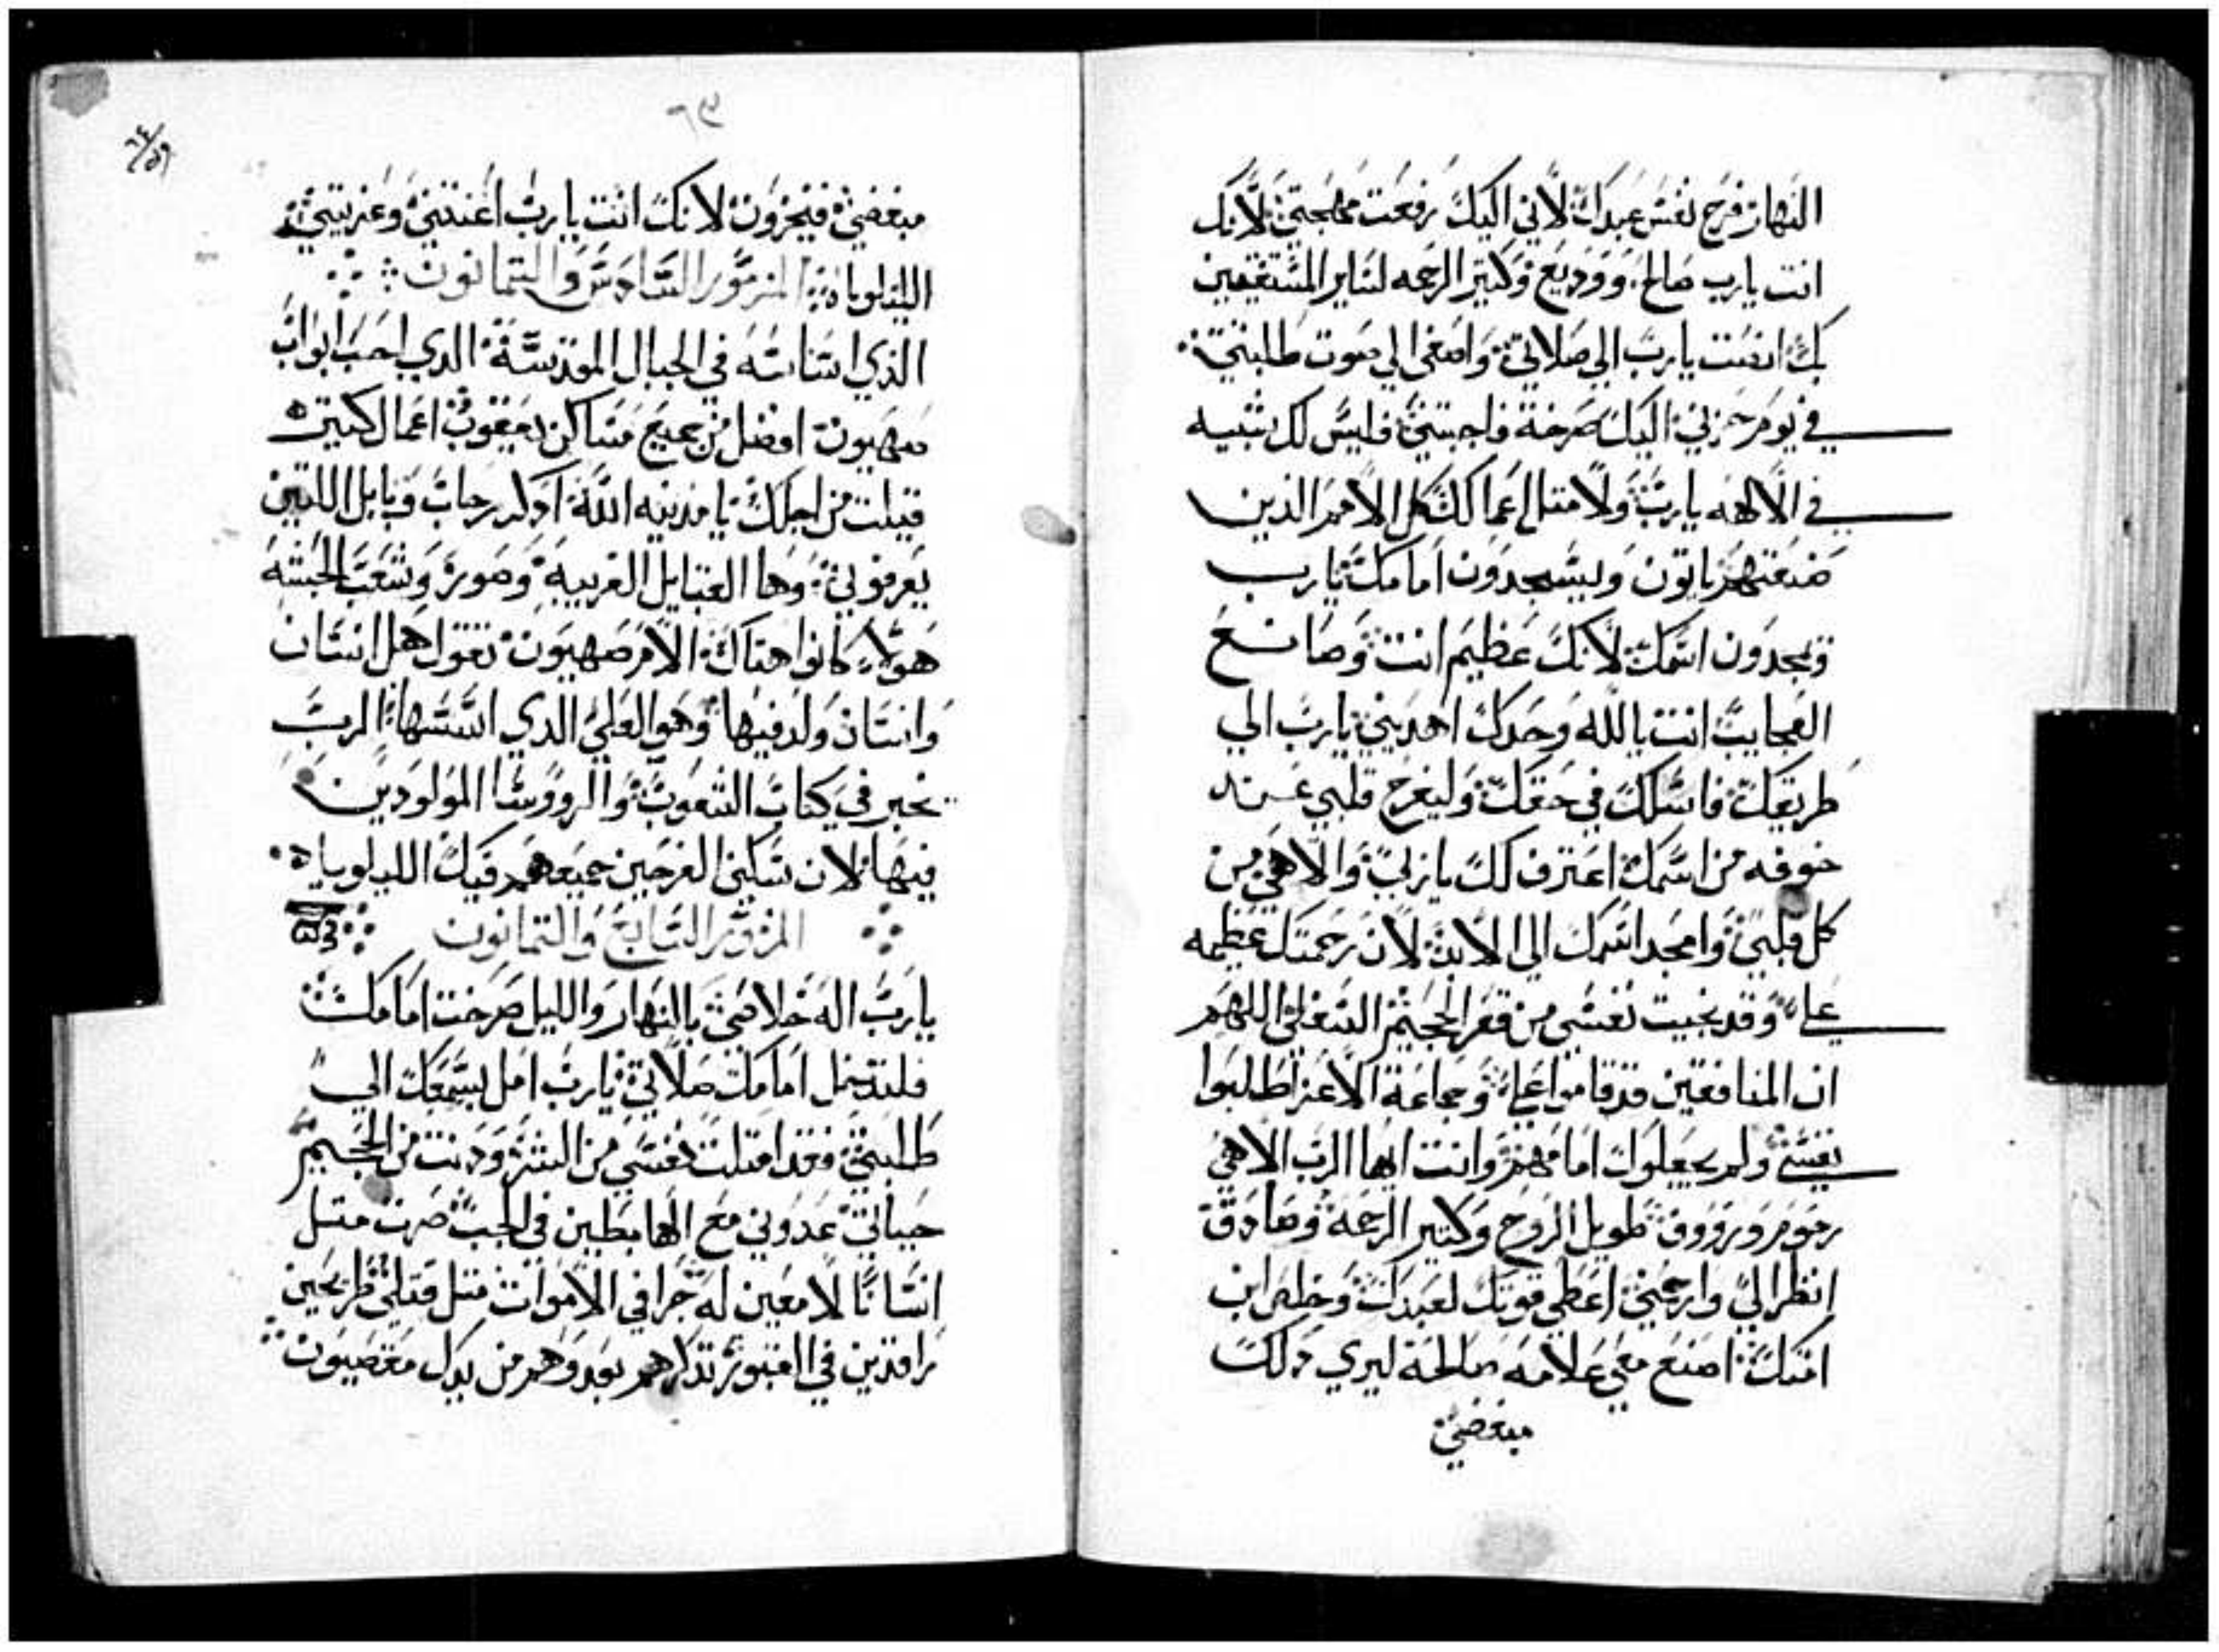 النهار فرح نفس عبدك لاني اليك رفعت مهجتي لانك
انت يارب صالح ووديع وكتير الرحمه لساير المستغيتين
بك انصت يارب الي صلاتي واصغي الي صوت طلبتي
في يوم حزني اليك صرخة فاجبتني فليس لك شبيه
في الالهه يارب ولا متل اعمالك كل الامم الذين
صنعتهم ياتون ويسجدون امامك يارب
ويمجدون اسمك لانك عظيم انت وصانع
العجايب انت يالله وحدك اهديني يارب الي
طريقك فاسلك في حقك وليفرح قلبي عند
خوفه من اسمك اعترف لك ياربي والاهي من
كل قلبي وامجد اسمك الي الابد لان رحمتك عظيمه
علي وقد نجيت نفسي من قعر الجحيم السفلي اللهم
ان المنافقين قد قاموا علي وجماعة الاعزا طلبوا
نفسي ولم يجعلوك امامهم وانت ايها الرب الاهي
رحوم ورووف طويل الروح وكتير الرحمة وصادق
انظر الي وارحمني اعطي قوتك لعبدك وخلص ابن
امتك اصنع معي علامه صالحة ليري ذلك
مبغضي
٦٩
مبغضي فيخزون لانك انت يارب اعنتني وعزيتني
الليلوياه المزمور السادس والتمانون
الذي اساساته في الجبال المقدسة الذي احب ابواب
صهيون افضل من جميع مساكن يعقوب اعمال كتيره
قيلت من اجلك يا مدينه الله اذكر رحاب وبابل اللتين
يعرفوني وها القبايل الغريبه وصور وشعب الحبشه
هولاء كانوا هناك الام صهيون تقول هل انسان
وانسان ولد فيها وهو العلي الذي اسسها الرب
يخبر في كتاب الشعوب والرووسا المولودين
فيها لان سكني الفرحين جميعهم فيك الليلوياه
المزمور السابع والتمانون
يارب اله خلاصي بالنهار والليل صرخت امامك
فلتدخل امامك صلاتي يارب امل بسمعك الي
طلبتي فقد امتلت نفسي من الشر ودنت من الجحيم
حياتي عدوني مع الهابطين في الجب صرت متل
انسانا لا معين له حرا في الاموات متل قتلي طريحين
راقدين في القبور تذكرهم بعد وهم من يدك مقصيون